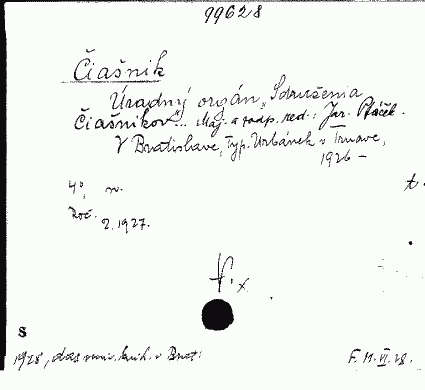 99628
Čiašnik
Úradný orgán „Sdruženia
Čiašnikov"... Maj. a zodp. red.: Jar. Ptáček.
V Bratislave, Typ. Urbánek v Trnave,
1926 –
4°, n. t.
Roč. 2. 1927.
S
1928, das univ. knih. v Brat. F. 11. VI. 28.